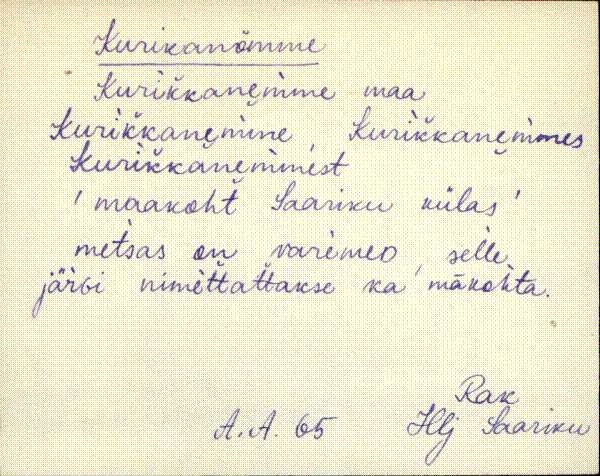 Kurikanõmme
Kurikkanemme maa
Kurikkanemme, Kurikkanemmes
Kurikkanemmest
'maakoht Saariku külas'
metsas on varemeo, selle
järbi nimettattakse ka mākohta.
Rak
A.A. 65 Hlj Saariku